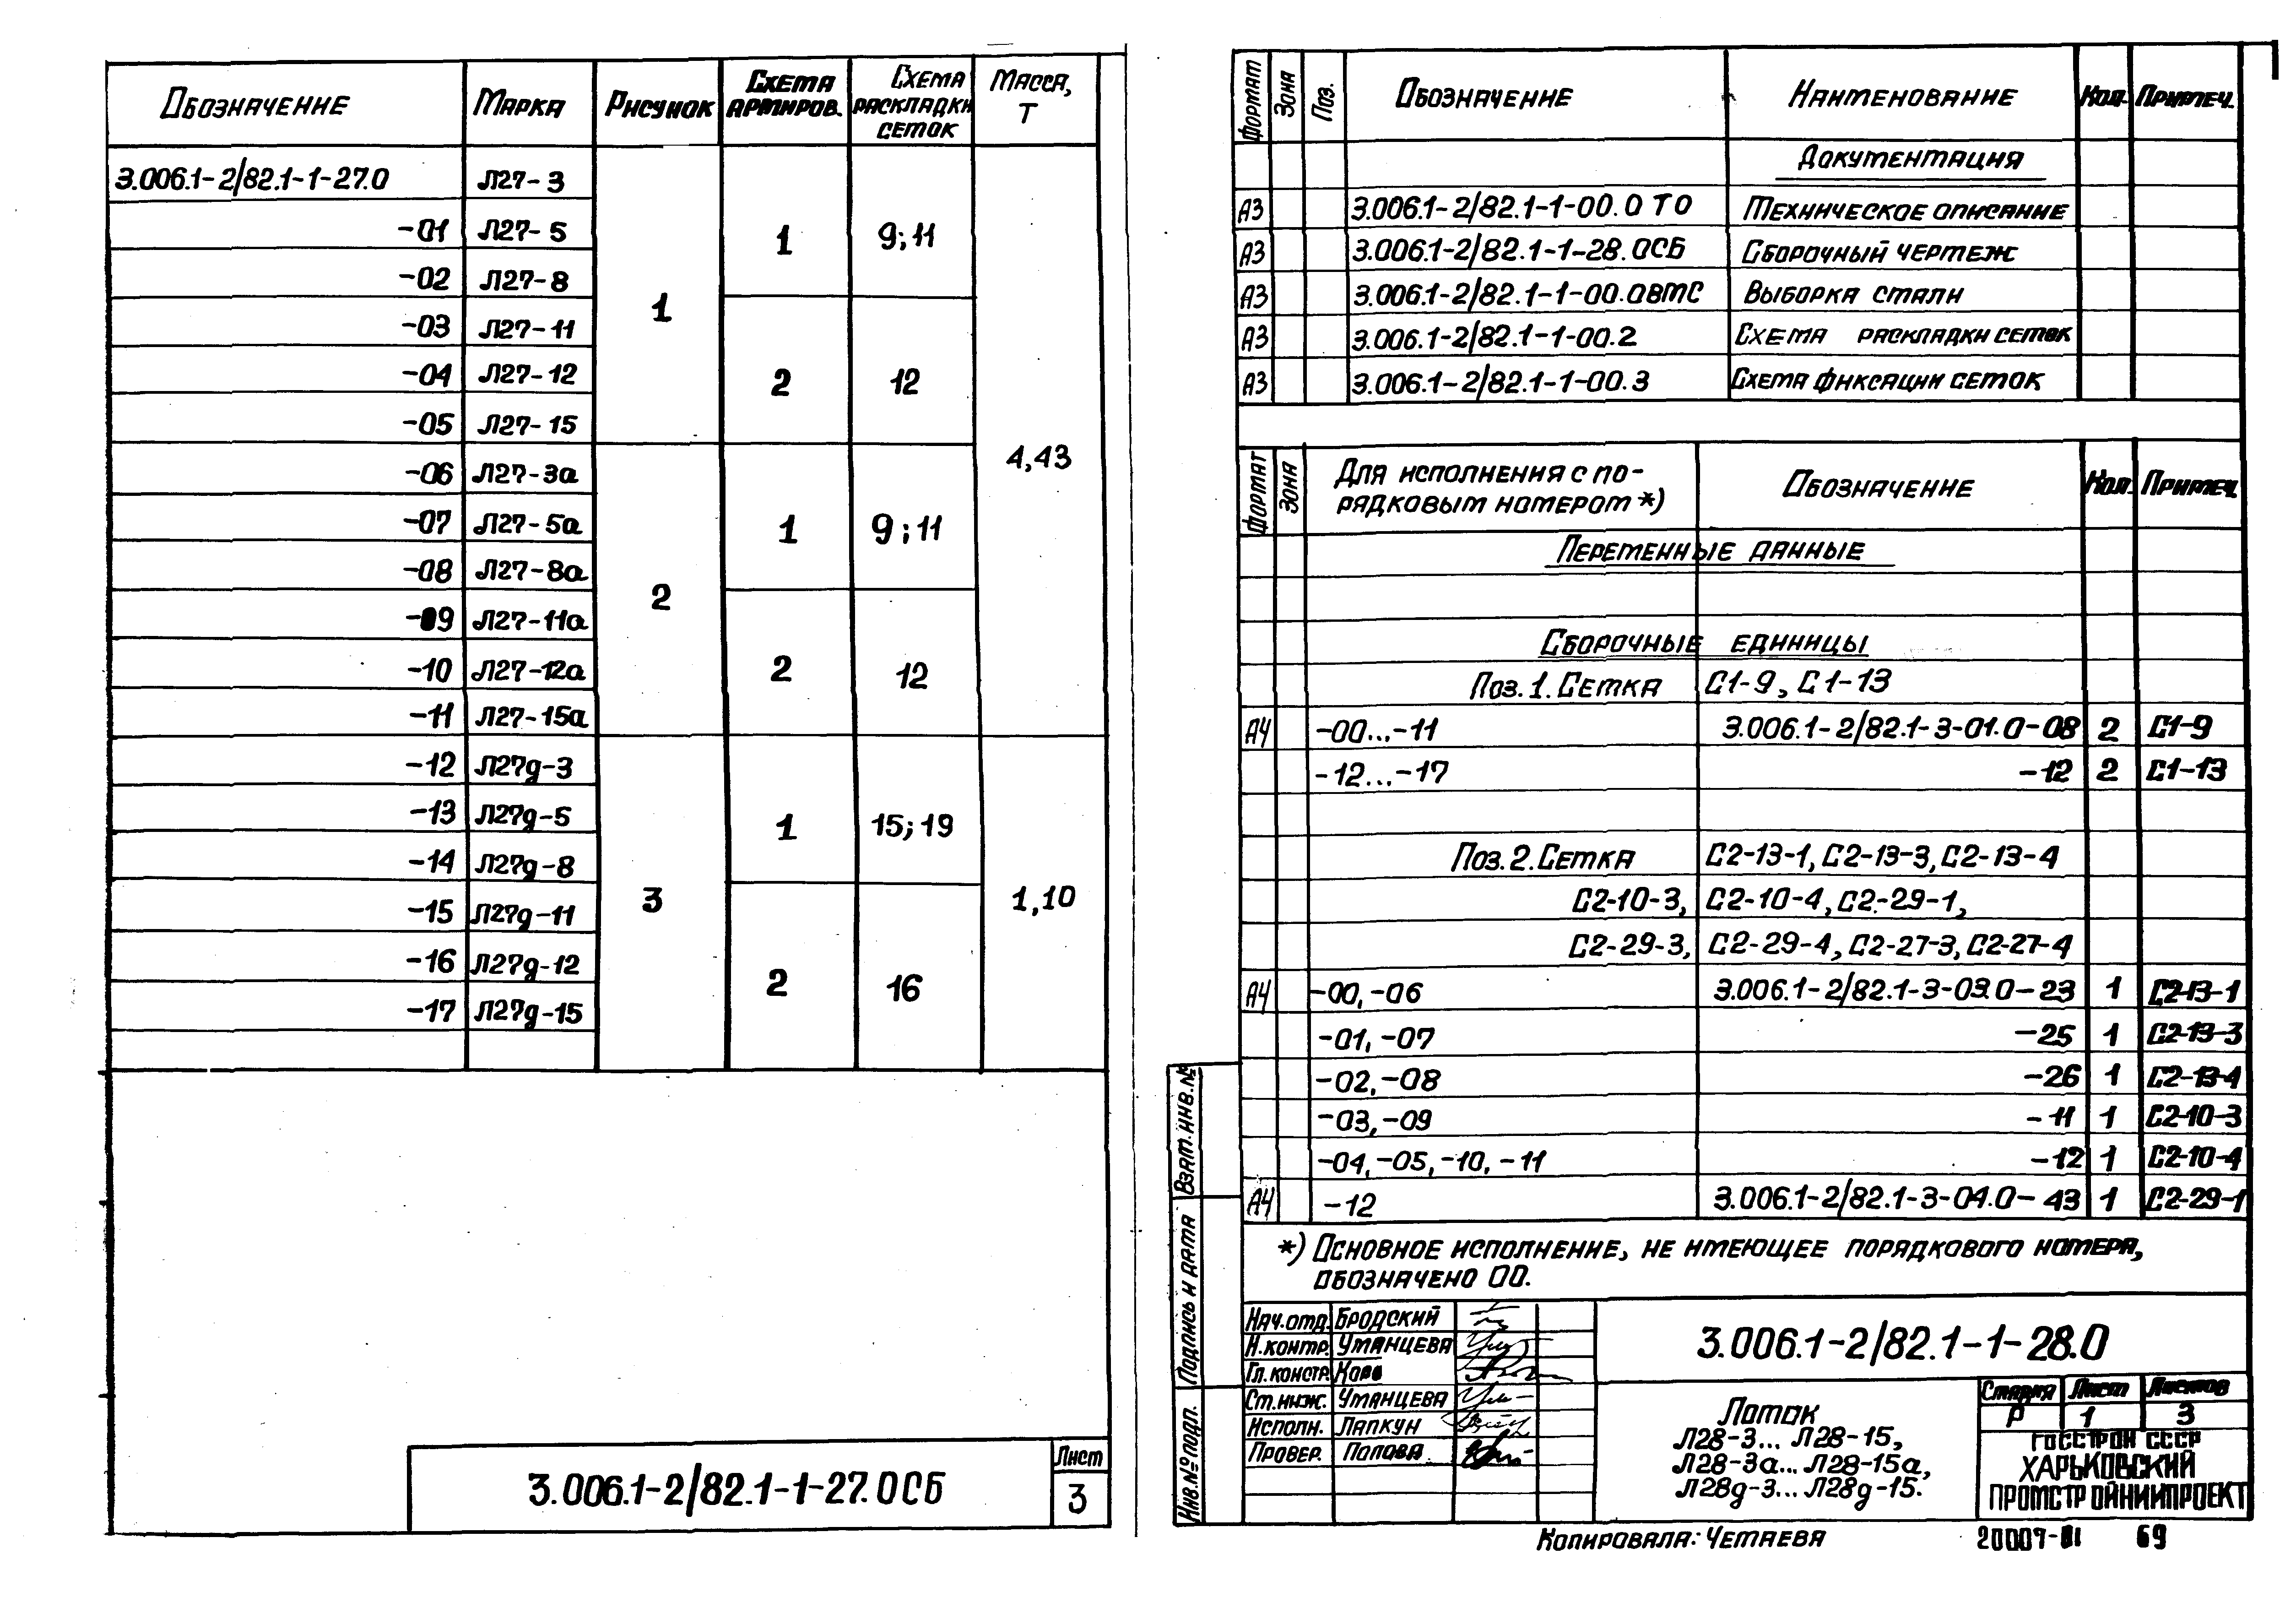 Обозначение Марка Рисунок Схема армиров. Схема раскладки сеток Масса, т
3.006.1-2/82.1-1-27.0 Л27-3
-01 Л27-5 1 9;11
-02 Л27-8
-03 Л27-11 1
-04 Л27-12 2 12
-05 Л27-15
4,43
-06 Л27-3а
-07 Л27-5а 1 9;11
-08 Л27-8а
2
-09 Л27-11а
-10 Л27-12а 2 12
-11 Л27-15а
-12 Л27д-3
-13 Л27д-5 1 15;19
-14 Л27д-8
-15 Л27д-11 3 1,10
-16 Л27д-12 2 16
-17 Л27д-15
3.006.1-2/82.1-1-27.0СБ
Лист
3
Формат Зона Поз. Обозначение Наименование Кол. Примеч.
Документация
А3 3.006.1-2/82.1-1-00.0 ТО Техническое описание
А3 3.006.1-2/82.1-1-28.0СБ Сборочный чертеж
А3 3.006.1-2/82.1-1-00.0ВМС Выборка стали
А3 3.006.1-2/82.1-1-00.2 Схема раскладки сеток
А3 3.006.1-2/82.1-1-00.3 Схема фиксации сеток
Формат Зона Для исполнения с по-
рядковым номером *) Обозначение Кол. Примеч.
Переменные данные
Сборочные единицы
Поз.1. Сетка С1-9, С1-13
А4 -00...-11 3.006.1-2/82.1-3-01.0-08 2 С1-9
-12...-17 -12 2 С1-13
Поз.2. Сетка С2-13-1, С2-13-3, С2-13-4
С2-10-3, С2-10-4, С2-29-1,
С2-29-3, С2-29-4, С2-27-3, С2-27-4
А4 -00, -06 3.006.1-2/82.1-3-03.0-23 1 С2-13-1
-01, -07 -25 1 С2-13-3
-02, -08 -26 1 С2-13-4
-03, -09 -11 1 С2-10-3
-04, -05, -10, -11 -12 1 С2-10-4
А4 -12 3.006.1-2/82.1-3-04.0-43 1 С2-29-1
*) Основное исполнение, не имеющее порядкового номера,
обозначено 00.
Взам. инв. №
Подпись и дата
Инв. № подл.
Нач.отд. Бродский
Н.контр. Уманцева
Гл.констр.
Ст.инж. Уманцева
Исполн. Лапкун
Провер. Попова
3.006.1-2/82.1-1-28.0
Лоток
Л28-3... Л28-15,
Л28-3а... Л28-15а,
Л28д-3... Л28д-15.
Стадия Лист Листов
Р 1 3
Госстрой СССР
ХАРЬКОВСКИЙ
ПРОМСТРОЙНИИПРОЕКТ
Копировала: Четаева
20007-01 69